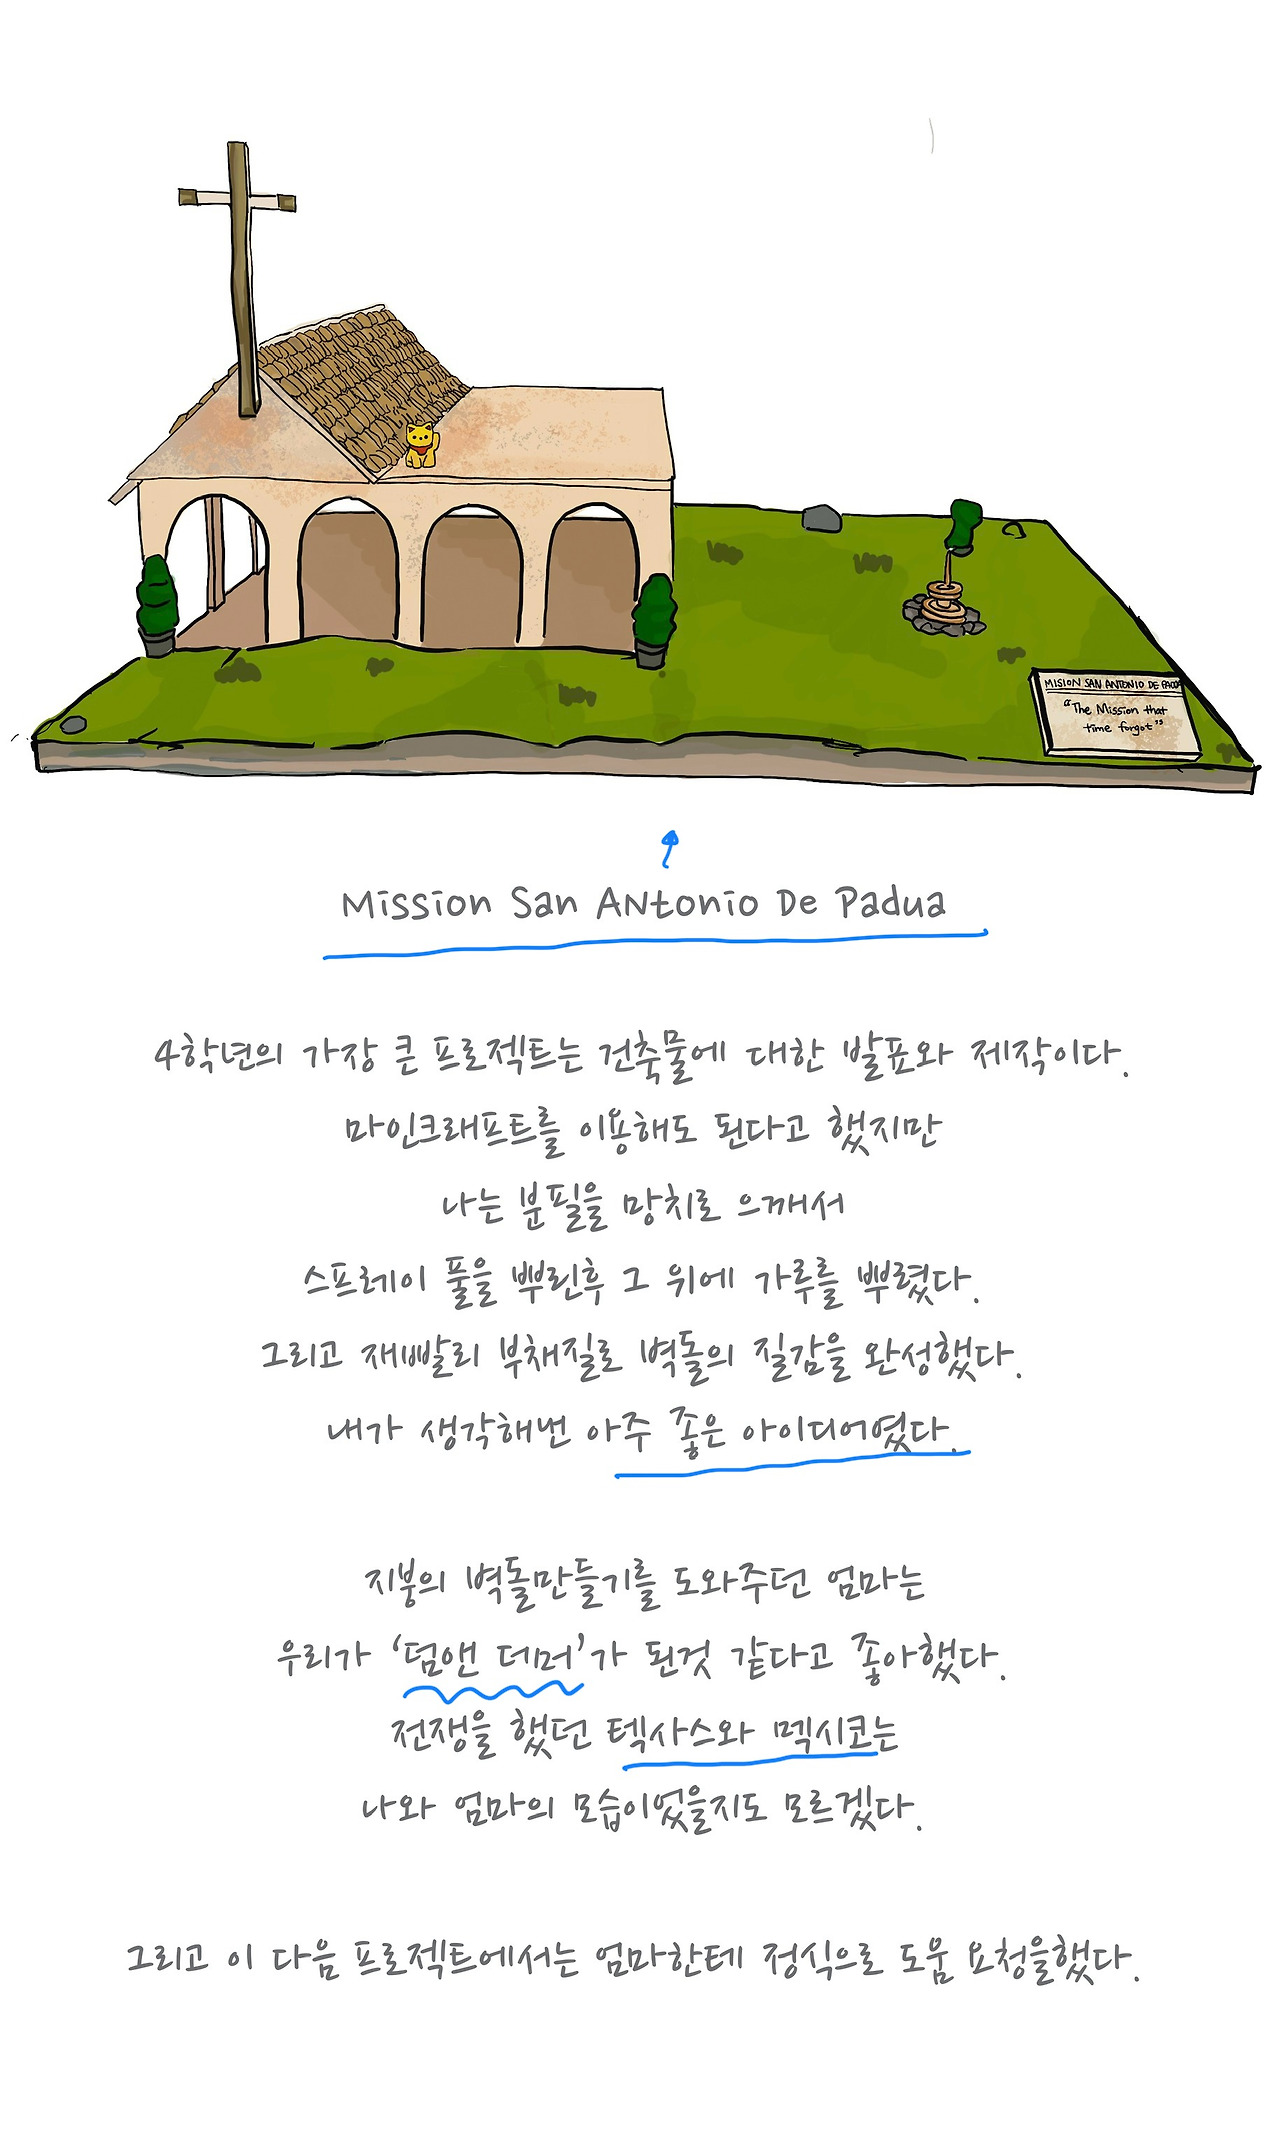 MISION SAN ANTONIO DE PADUA
"The Mission that
time forgot"
Mission San Antonio De Padua
4학년의 가장 큰 프로젝트는 건축물에 대한 발표와 제작이다.
마인크래프트를 이용해도 된다고 했지만
나는 분필을 망치로 으깨서
스프레이 풀을 뿌린후 그 위에 가루를 뿌렸다.
그리고 재빨리 부채질로 벽돌의 질감을 완성했다.
내가 생각해낸 아주 좋은 아이디어였다.
지붕의 벽돌만들기를 도와주던 엄마는
우리가 '덤앤 더머'가 된것 같다고 좋아했다.
전쟁을 했던 텍사스와 멕시코는
나와 엄마의 모습이었을지도 모르겠다.
그리고 이 다음 프로젝트에서는 엄마한테 정식으로 도움 요청을했다.